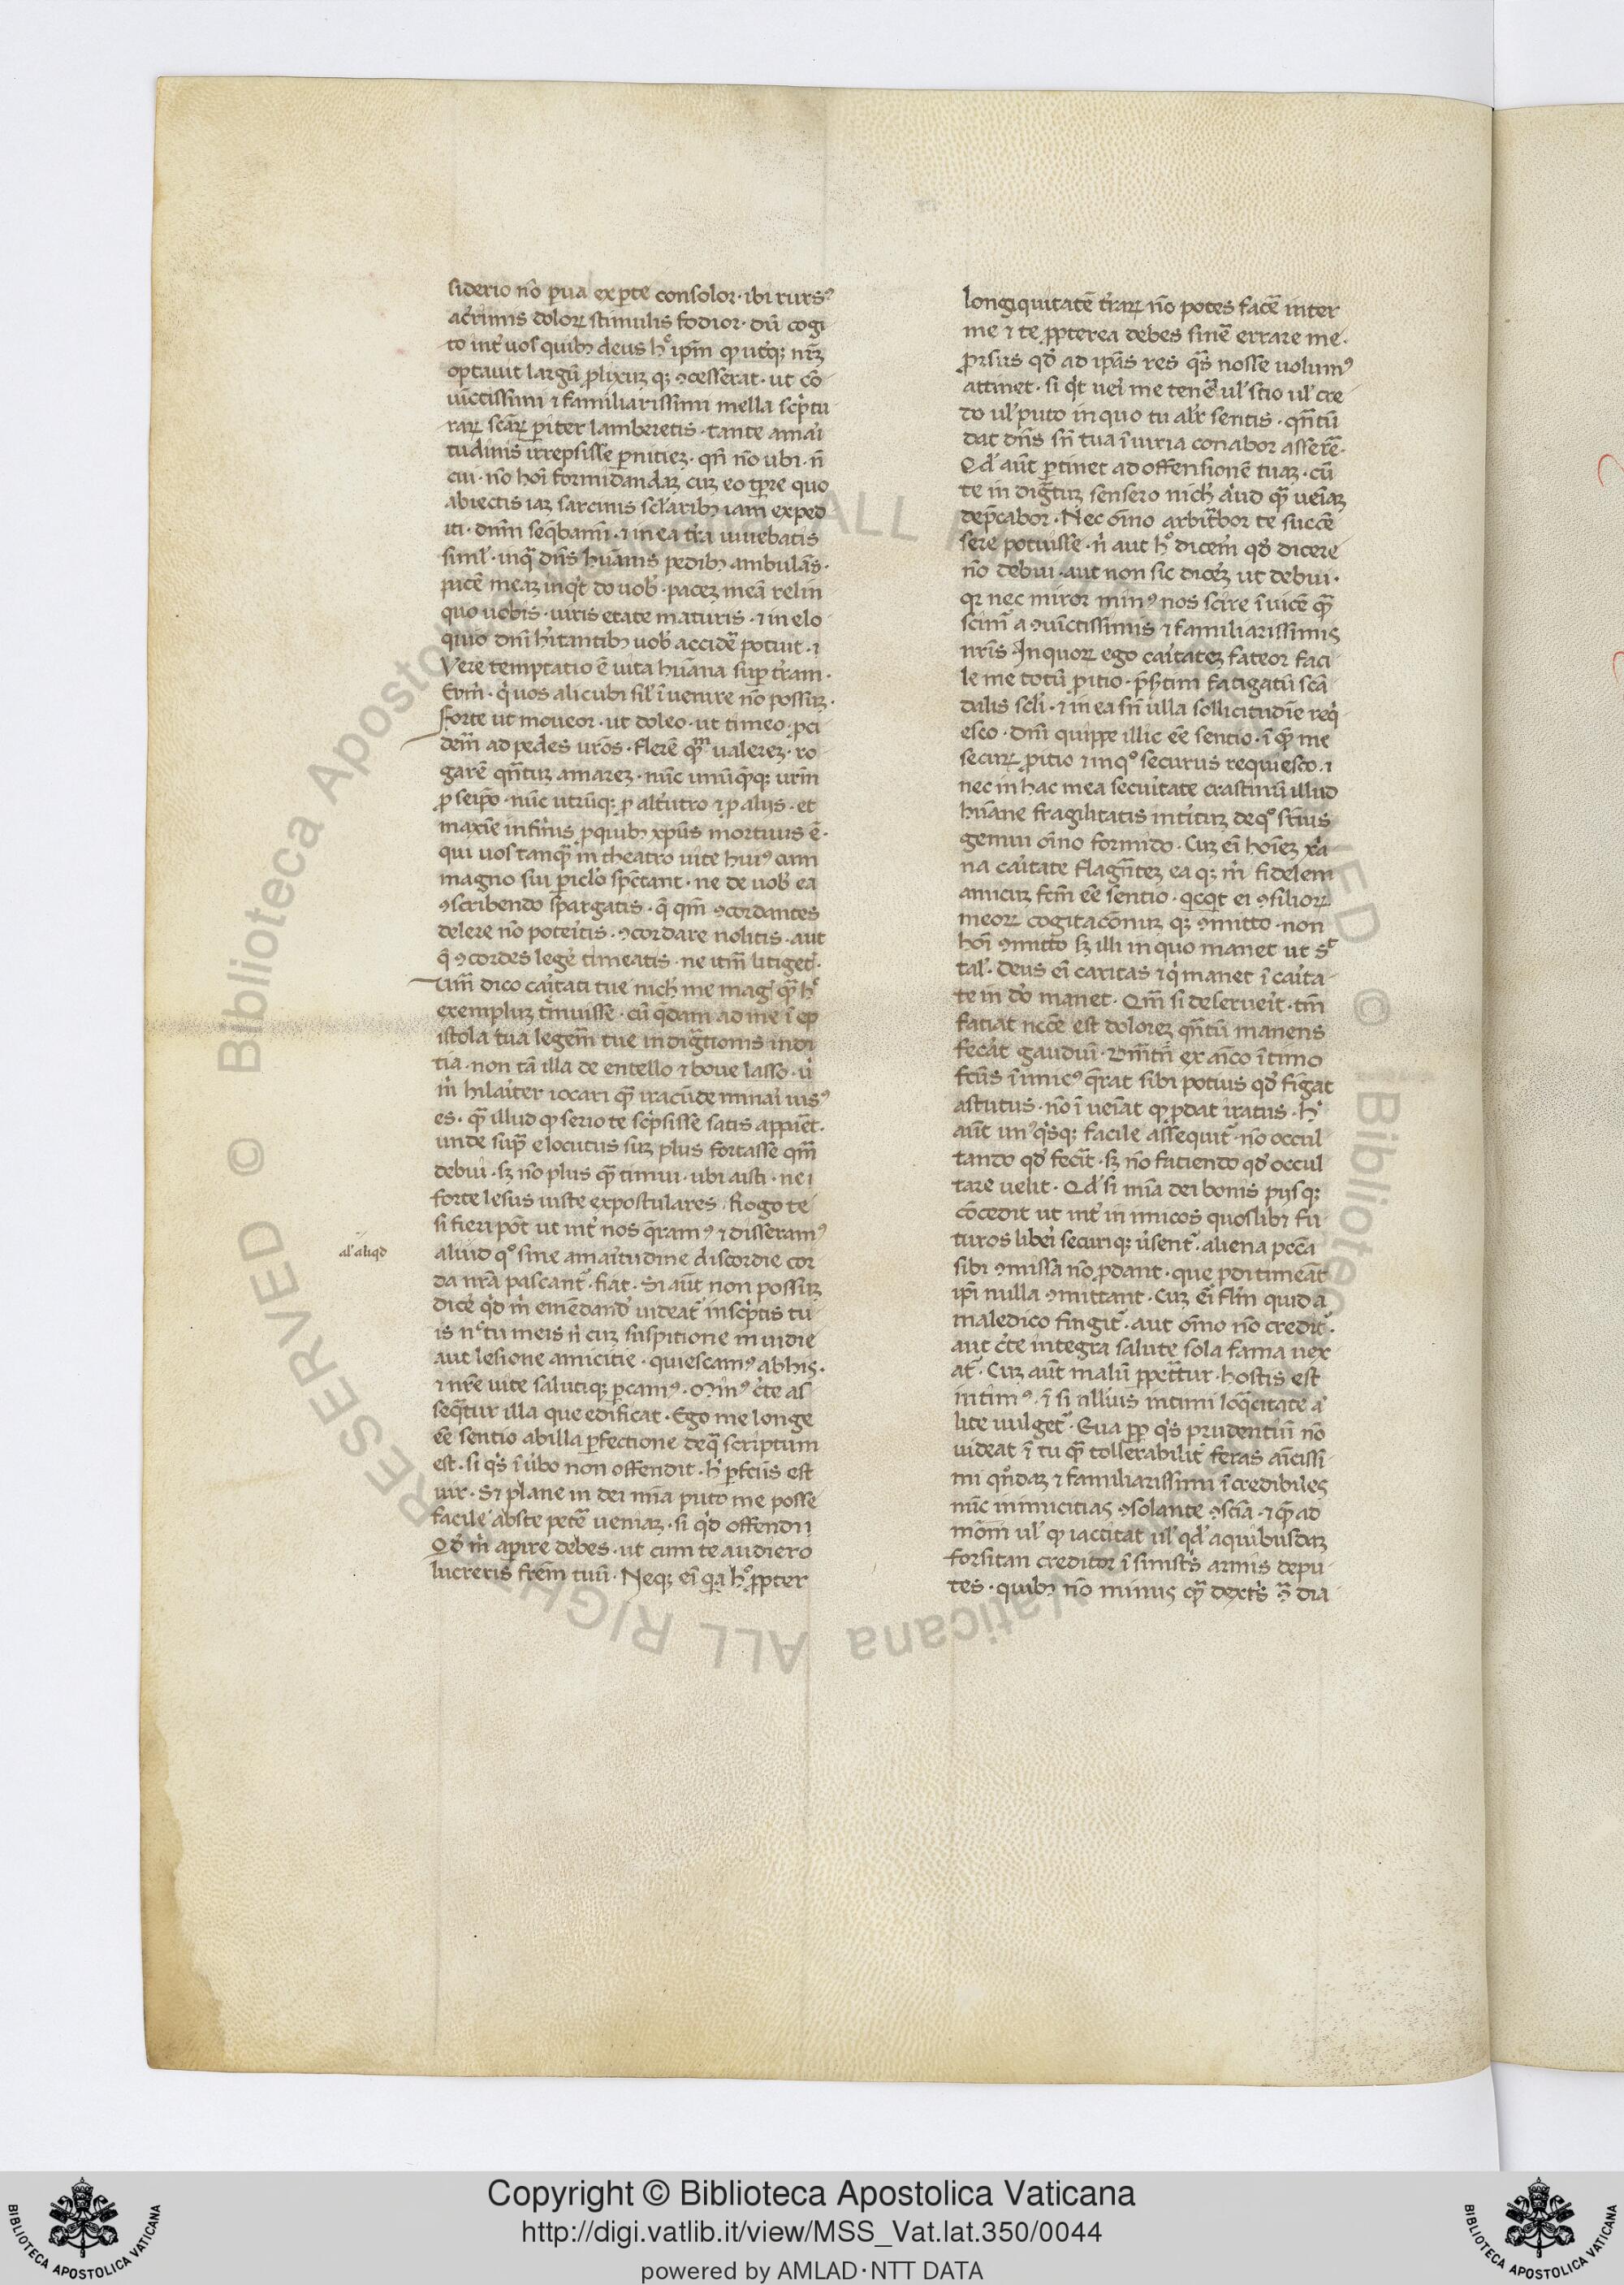 siderio nō ꝑua ex ꝑte consolor · ibi rursꝰ
acrimis doloꝝ stimulis fodior · dū cogi
to int̾ uos quibꝫ deus hͦ ipm̄ qͥ ut̾qꝫ nr̄ꝫ
optauit largū ꝓlixuꝫ qꝫ ꝯcesserat · ut cō
uictissimi ⁊ familiarissimi mella scͥptu
raꝝ scāꝝ pariter lamberetis · tante amai
tudinis irrepsisse ꝑnitieꝫ · qn̄ nō ubi · n̄
cui · nō hoī formidandaꝫ cuꝫ eo tꝑre quo
abiectis iaꝫ sarcinis scl̾aribꝫ iam exped
iti · dnm̄ seqͣbamī · ⁊ in ea t̾ra uiuebatis
siml̾ · inqͣ dn̄s huānis pedibꝫ ambulās ·
pacē meaꝫ inqͥt do uob̾ · paceꝫ meā relin
quo uobis · uiris etate maturis · ⁊ in elo
qͥuio dnī hitantibꝫ uob̾ accidē potuit · ⁊
Vere temptatio ē uita huāna suꝑ t̾ram ·
Eum̄ · qͥ uos alicubi sil̾ īuenire nō possuꝫ ·
forte ut moueor · ut doleo · ut timeo · ꝓci
dem̄ ad pedes uros · flerē qͣꝫ ualereꝫ · ro
garē qn̄tuꝫ amareꝫ · nūc unūqͣqꝫ urm̄
ꝓ seipō · nūc utrūqꝫ ꝓ alt̾utro ⁊ ꝓ alijs · et
maxīe infirmis ꝓ quibꝫ xp̄us mortuus ē ·
qui uos tanqͣ in theatro uite huiꝰ cum
magno sui piclo̾ spectant · ne de uob̾ ea
ꝯscribendo spargatis · q̄ qm̄ ꝯcordantes
delere nō poteitis · ꝯcordare nolitis · aut
q̄ ꝯcordes leg̾e timeatis · ne itm̄ litiget̾ ·
Vim̄ dico caitati tue nich̾ me mag̾ qͣ hͦ
exempluꝫ tͥmuisse · cū qͣdam ad me ī ep
istola tua legem̄ tue indigͣtionis indi
tia · non tā illa de entello ⁊ boue lasso · ū
m̾ hilaiter iocari qͣ iracūde minai uisꝰ
es · qͣ illud qͥ serio te scͥpsisse satis apparet ·
unde supͣ elocutus suꝫ plus fortasse qͣm
debui · sꝫ nō plus qͣ timui · ubi aisti · ne ⁊
forte lesus iuste expostulares · Rogo te
si fieri pōt ut int̾ nos qͣramꝰ ⁊ disseramꝰ
al̾ aliqd
aliud qͦ sine amaitudine discordie cor
da nrā pascant̾ · fiat · Si aūt non possuꝫ
dic̾e qͥd m̾ emēdand̾ uideat̾ inscͥptis tu
is nͨ tu meis n̄ cuꝫ suspitione inuidie
aut lesione amicitie · quiescamꝰ ab his ·
⁊ nr̄e uite salutiqꝫ ꝑcamꝰ · Minꝰ c̾te as
seqͣtur illa que edificat · Ego me longe
eē sentio ab illa ꝑfectione de qͣ scriptum
est · si qͥs ī ūbo non offendit · hͥ ꝑfc̄us est
uir · Si plane in dei mīa puto me posse
facile abste petē ueniaꝫ · si qͥd offendi ⁊
Qd̾ m̾ aꝑire debes · ut cum te audiero
lucreris frem̄ tuū · Neqꝫ eī qͣ hͦ ꝓpter
longiquitatē t̾raꝝ nō potes facē inter
me ⁊ te ꝓpterea debes sinē errare me ·
Prsus qd̾ ad ipās res qͣs nosse uolumꝰ
attinet · si qͥt ueri me tenē ul̾ scio ul̾ cre
do ul̾ puto in quo tu alit̾ sentis · qn̄tū
dat dn̄s sn̄ tua īiuria conabor asserē ·
Qd̾ aūt ꝑtinet ad offensionē tuaꝫ · cū
te indigͣtuꝫ sensero nich̾ aliud qͣ ueīaꝫ
dep̄cabor · Nec oīno arbit̾bor te succē
sere potuisse · n̄ aut hͦ dicem̄ qd̾ dicere
nō debui · aut non sic diceꝫ ut debui ·
qꝛ nec miror minꝰ nos scire īuicē qͣ
scim̄ a ꝯuictissimis ⁊ familiarissimis
nris · In quoꝝ ego caitateꝫ fateor faci
le me totū ꝓitio · p̄s̾tim fatigatū scā
dalis scl̾i · ⁊ in ea sn̄ ulla sollicitudīe reqͥ
esco · dnm̄ quippe illic eē sentio · ī qͥ me
secuꝝ ꝓitio ⁊ in qͦ securus requiesco · ⁊
nec in hac mea secuitate crastinū illud
huāne fragilitatis int̾ituꝫ de qͦ sr̄ius
gemui oīno formido · Cuꝫ eī hoīeꝫ xͥa
na caitate flagn̄teꝫ ea qꝫ m̾ fidelem
amicuꝫ fcm̄ eē sentio · qͥcqͥt ei ꝯsilioꝝ
meoꝝ cogitacōnuꝫ qꝫ ꝯmitto · non
hoī ꝯmitto sꝫ illi in quo manet ut sͭ
tal̾ · deus eī caritas ⁊ qͥ manet ī caita
te in dō manet · Qm̄ si deserueit · tm̄
fatiat nccē est doloreꝫ qn̄tū manens
fecāt gaudiū · Vm̄tn̄ ex aīco ītimo
fc̄us īimicꝰ qͣrat sibi potius qd̾ fingat
astutus · nō īueīat qͥ ꝓdat iratus · hͨ
aūt unꝰqͥsqꝫ facile assequit̾ · nō occul
tando qd̾ fecīt · sꝫ nō faciendo qd̾ occul
tare uelit · Qd̾ si mīa dei bonis pijsqꝫ
cōcedit ut int̾ inimicos quoslibꝫ fu
turos liberi securiqꝫ ūsent̾ · aliena pccā
sibi ꝯmissa nō ꝓdant · que ꝓdi timeāt
ipī nulla ꝯmittant · Cuꝫ eī flm̄ quid a
maledico fingit̾ · aut oīno nō credit̾ ·
aut c̾te integra salute sola fama uex
at̾ · Cuꝫ aūt malū ꝑpetͣtur · hostis est
intimꝰ · ī si nllīus intimi loqͣcitate a
lite uulget̾ · Eua ꝓꝑ qͥs prudentiū nō
uideat ī tu qͣ tollerabilit̾ feras aīcissi
mi qn̄daꝫ ⁊ familiarissimi īcredibiles
nūc inimicitias ꝯsolante ꝯscīa · ⁊ qͣ ad
modm̄ ul̾ qͥ iactitat ul̾ qd̾ a quibusdaꝫ
forsitan creditor ī sinistͥs armis depu
tes · quibꝫ nō minus qͣ dextͥs ꝯ̄ dia